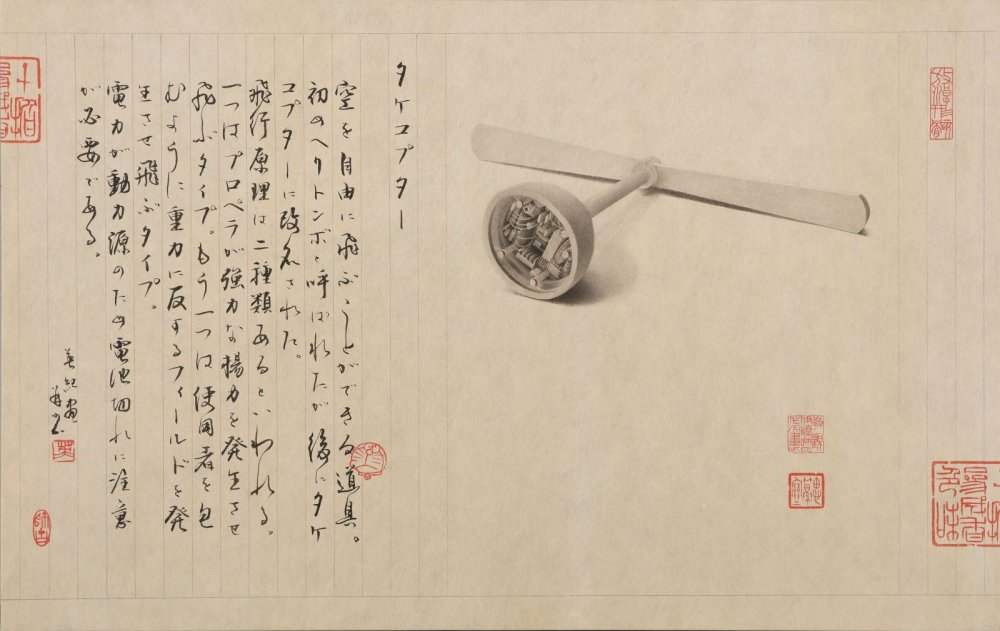 タケコプター
空を自由に飛ぶことができる道具。
初めヘリトンボと呼ばれたが後にタケ
コプターに改名された。
飛行原理は二種類あるといわれる。
一つはプロペラが強力な揚力を発生させ
飛ぶタイプ。もう一つは使用者を包
むように重力に反するフィールドを発
生させ飛ぶタイプ。
電力が動力源のため電池切れに注意
が必要である。